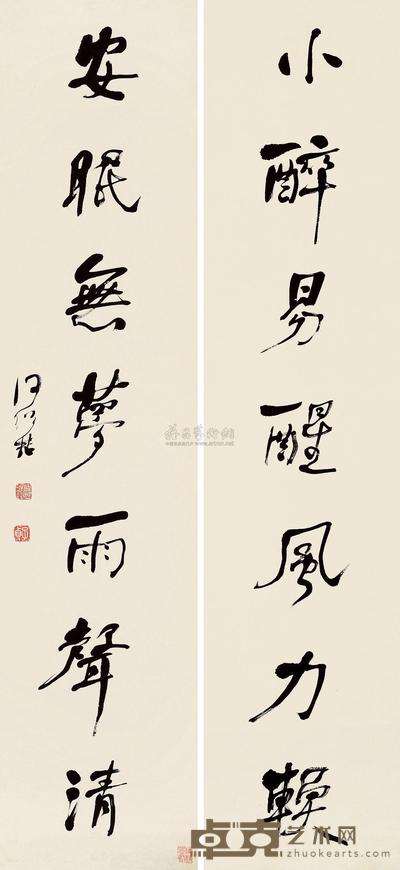 小醉易醒風力輭
安眠無夢雨聲清
卓克艺术网
zhuokearts.com